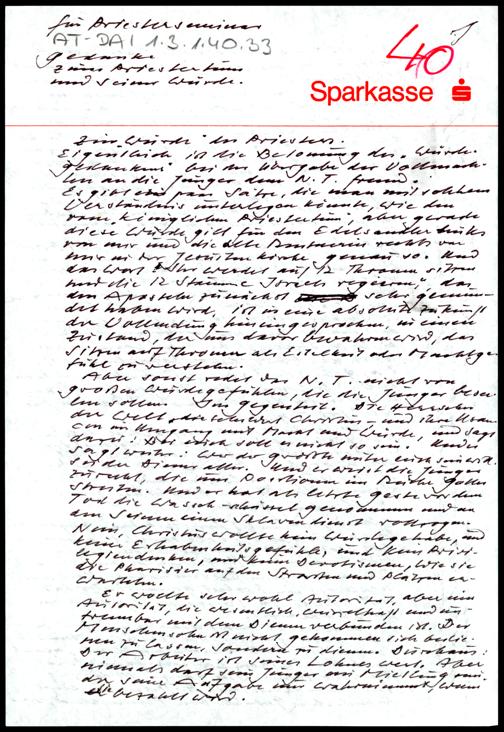 für Priesterseminar
AT-DAI 1.3.1.40.33
40
Gedanke
zum Priestertum
und seiner Würde.
Sparkasse
Zur "Würde" des Priesters.
Eigentlich ist die Betonung des "Würde-
gedankens" bei der Übergabe der Vollmach-
ten an die Jünger dem N.T. fremd.
Es gibt ein paar Sätze, die man mit solchem
Verständnis unterlegen könnte, wie den
vom "königlichen Priestertum", aber gerade
diese Würde gilt für den Edelsandler links
von mir und die alte Bäuerin rechts von
mir in der Jesuitenkirche genau so. Und
das Wort "Ihr werdet auf 12 Thronen sitzen
und die 12 Stämme Israels regieren", das
den Aposteln zunächst sehr gemun-
det haben wird, ist in eine absolute Zukunft
der Vollendung hineingesprochen, in einen
Zustand, der uns davor bewahren wird, das
Sitzen auf Thronen als Eitelkeit oder Machtge-
fühl zu verstehen.
Aber sonst redet das N.T. nicht von
großen Würdegefühlen, die die Jünger besee-
len sollen. Im Gegenteil. Die Herrscher
der Welt charakterisiert Christus und ihr
im Umgang mit Macht und Würde, und sagt
dazu: Bei euch soll es nicht so sein. Und er
sagt weiter: Wer der größte unter euch sein will,
sei der Diener aller. Und er weist die Jünger
zurecht, die um Positionen im Reiche Gottes
streiten. Und er hat als letzte Geste vor dem
Tod die Waschschüssel genommen und an
den Seinen einen Sklavendienst vollzogen.
Nein, Christus wollte kein Würdegehabe, und
keine Erhabenheitsgefühle, und kein Privi-
legiendenken, und keine Devotismen, wie sie
die Pharisäer auf den Straßen und Plätzen er-
warteten.
Er wollte sehr wohl Autorität, aber eine
Autorität, die wesentlich, wurzelhaft und un-
trennbar mit dem Dienen verbunden ist. Der
Menschensohn ist nicht gekommen sich bedie-
nen zu lassen, sondern zu dienen. Durchaus:
Der Arbeiter ist seines Lohnes wert. Aber
niemals darf sein Jünger ein Mietling sein,
der seine Aufgabe nur wahrnimmt, wenn
er bezahlt wird.